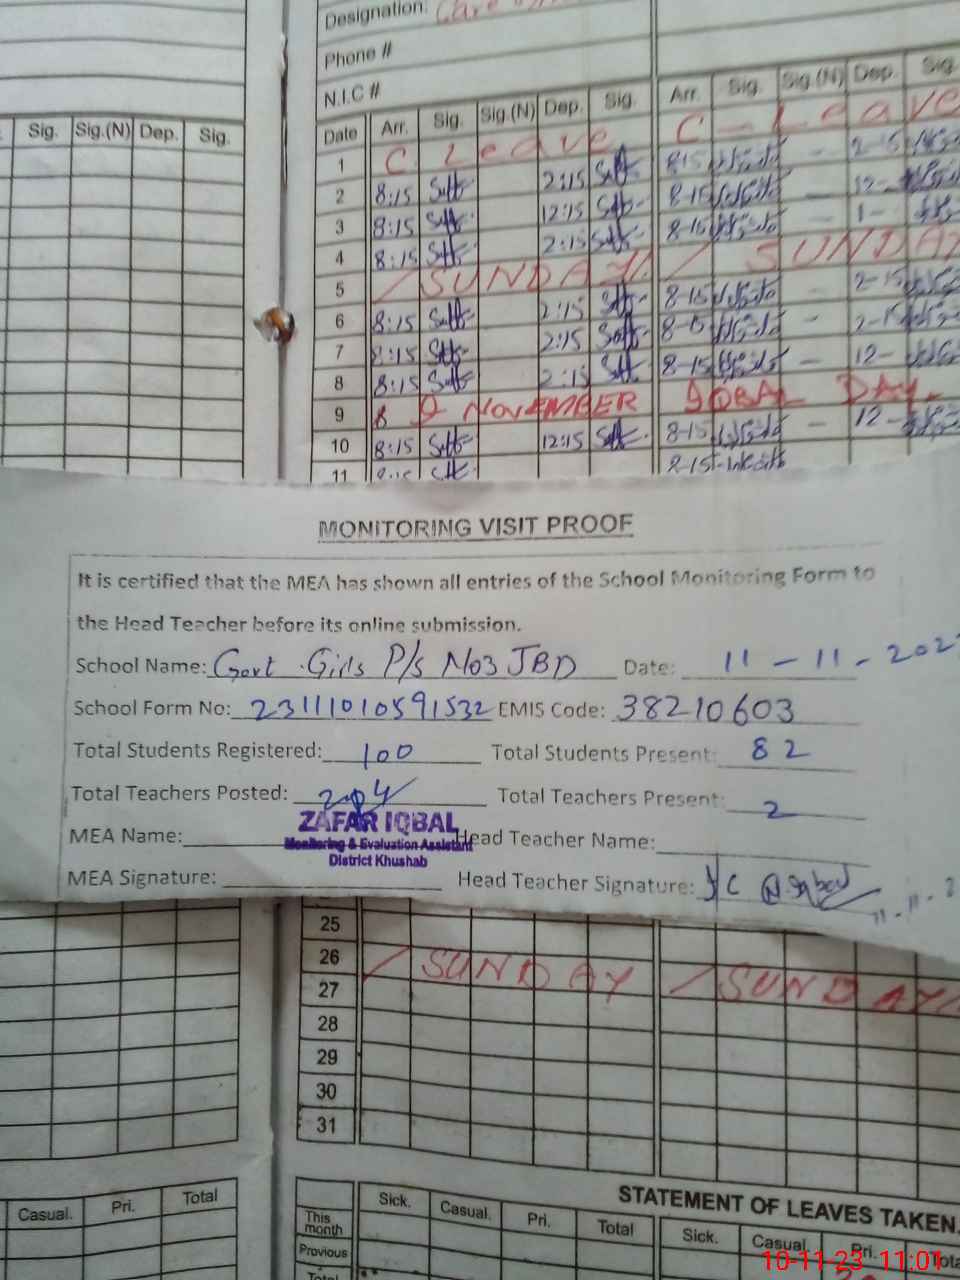 Designation: Care
Phone #
N.I.C #
Sig. Sig.(N) Dep. Sig.
Date Arr. Sig. Sig.(N) Dep. Sig. Arr. Sig. Sig.(N) Dep. Sig.
1 C Leave C - Leave
2 8:15 2:15 8-15 - 2-15
3 8:15 12:15 8-15 - 12-
4 8:15 2:15 8-15 - 1-
5 / SUNDAY / SUNDAY
6 8:15 2:15 8-15 - 2-15
7 8:15 2:15 8-15 - 2-15
8 8:15 2:15 8-15 - 12-
9 9 NOVEMBER IQBAL DAY
10 8:15 12:15 8-15 - 12-
11 8-15
MONITORING VISIT PROOF
It is certified that the MEA has shown all entries of the School Monitoring Form to
the Head Teacher before its online submission.
School Name: Govt Girls P/s No3 JBD Date: 11-11-202
School Form No: 23111010591532 EMIS Code: 38210603
Total Students Registered: 100 Total Students Present: 82
Total Teachers Posted: Total Teachers Present: 2
ZAFAR IQBAL
MEA Name: Monitoring & Evaluation Assistant Head Teacher Name:
District Khushab
MEA Signature: Head Teacher Signature:
11-11-2
25
26 / SUNDAY / SUNDAY
27
28
29
30
31
STATEMENT OF LEAVES TAKEN.
Casual. Pri. Total
Sick. Casual. Pri. Total Sick. Casual. Pri. Total
This month
Previous
Total
10-11-23 11:01